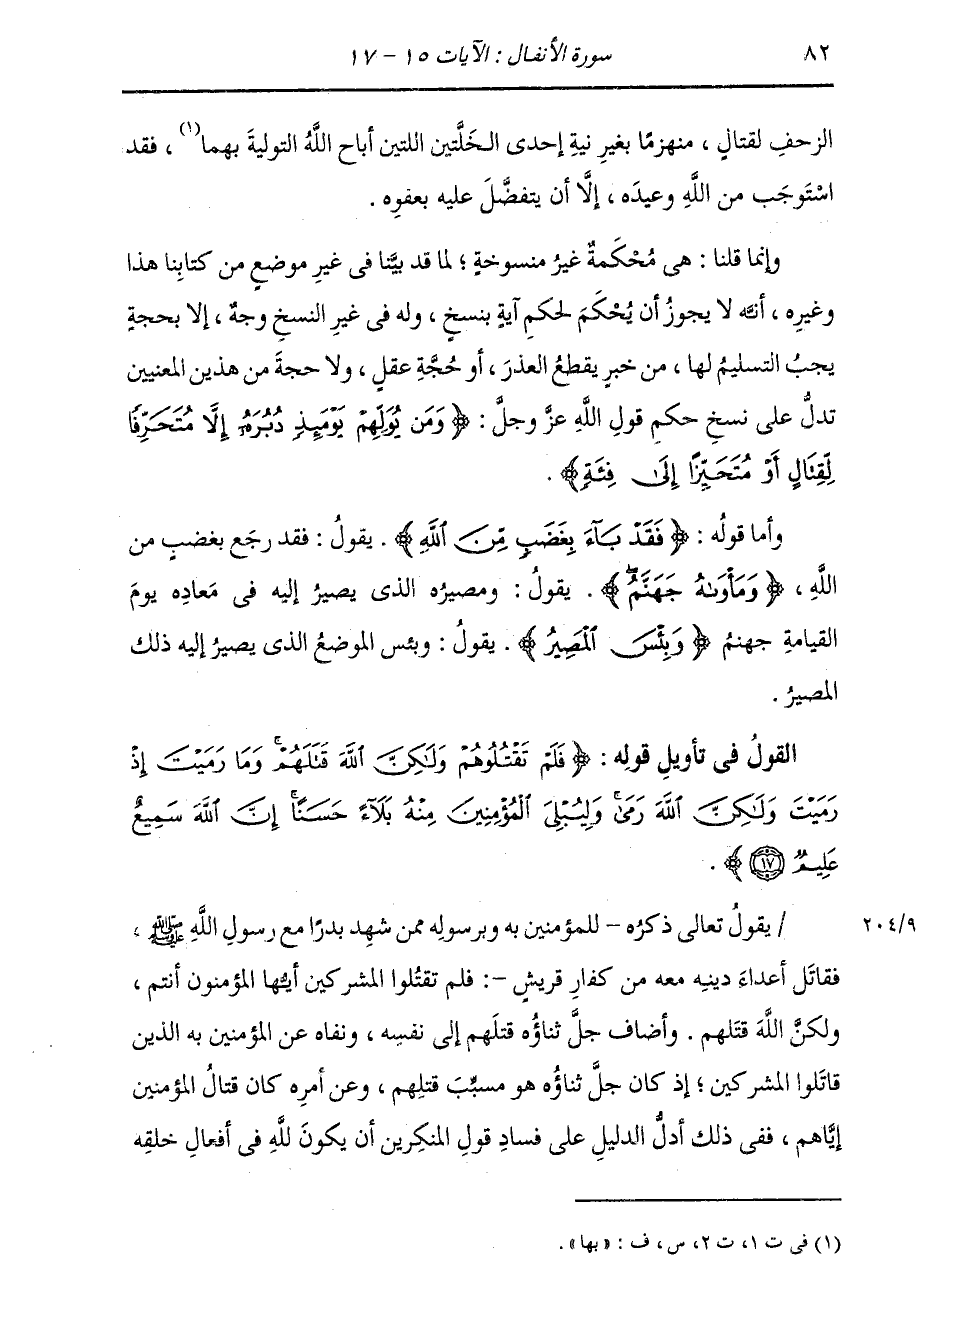 ٨٢ سورة الأنفال : الآيات ١٥ - ١٧
الزحفِ لقتالٍ ، منهزمًا بغيرِ نيةِ إحدى الـخَلَّتين اللتين أباح اللَّهُ التوليةَ بهما(١) ، فقد
اسْتَوجَب من اللَّهِ وعيدَه ، إلَّا أن يتفضَّلَ عليه بعفوِه .
وإنما قلنا : هى مُحْكَمةٌ غيرُ منسوخةٍ ؛ لما قد بيَّنا فى غيرِ موضعٍ من كتابِنا هذا
وغيرِه ، أنه لا يجوزُ أن يُحْكَمَ لحكمِ آيةٍ بنسخٍ ، وله فى غيرِ النسخِ وجهٌ ، إلا بحجةٍ
يجبُ التسليمُ لها ، من خبرٍ يقطعُ العذرَ ، أو حُجَّةِ عقلٍ ، ولا حجةَ من هذين المعنيين
تدلُّ على نسخِ حكمِ قولِ اللَّهِ عزَّ وجلَّ : ﴿ وَمَن يُوَلِّهِمْ يَوْمَئِذٍ دُبُرَهُۥٓ إِلَّا مُتَحَرِّفًا
لِّقِتَالٍ أَوْ مُتَحَيِّزًا إِلَىٰ فِئَةٍ ﴾ .
وأما قولُه : ﴿ فَقَدْ بَآءَ بِغَضَبٍ مِّنَ ٱللَّهِ ﴾ . يقولُ : فقد رجَع بغضبٍ من
اللَّهِ ، ﴿ وَمَأْوَىٰهُ جَهَنَّمُۖ ﴾ . يقولُ : ومصيرُه الذى يصيرُ إليه فى مَعادِه يومَ
القيامةِ جهنمُ ﴿ وَبِئْسَ ٱلْمَصِيرُ ﴾ . يقولُ : وبئس الموضعُ الذى يصيرُ إليه ذلك
المصيرُ .
القولُ فى تأويلِ قولِه : ﴿ فَلَمْ تَقْتُلُوهُمْ وَلَٰكِنَّ ٱللَّهَ قَتَلَهُمْۚ وَمَا رَمَيْتَ إِذْ
رَمَيْتَ وَلَٰكِنَّ ٱللَّهَ رَمَىٰۚ وَلِيُبْلِىَ ٱلْمُؤْمِنِينَ مِنْهُ بَلَآءً حَسَنًاۚ إِنَّ ٱللَّهَ سَمِيعٌ
عَلِيمٌ ١٧ ﴾ .
٢٠٤/٩ / يقولُ تعالى ذكرُه - للمؤمنين به وبرسولِه ممن شهِد بدرًا مع رسولِ اللَّهِ ﷺ ،
فقاتَل أعداءَ دينِه معه من كفارِ قريشٍ -: فلم تقتُلوا المشركين أيُّها المؤمنون أنتم ،
ولكنَّ اللَّهَ قتَلهم . وأضاف جلَّ ثناؤُه قتلَهم إلى نفسِه ، ونفاه عن المؤمنين به الذين
قاتَلوا المشركين ؛ إذ كان جلَّ ثناؤُه هو مسبِّبَ قتلِهم ، وعن أمرِه كان قتالُ المؤمنين
إيَّاهم ، ففى ذلك أدلُّ الدليلِ على فسادِ قولِ المنكِرين أن يكونَ للَّهِ فى أفعالِ خلقِه
(١) فى ت ١، ت ٢، س، ف : «بها».